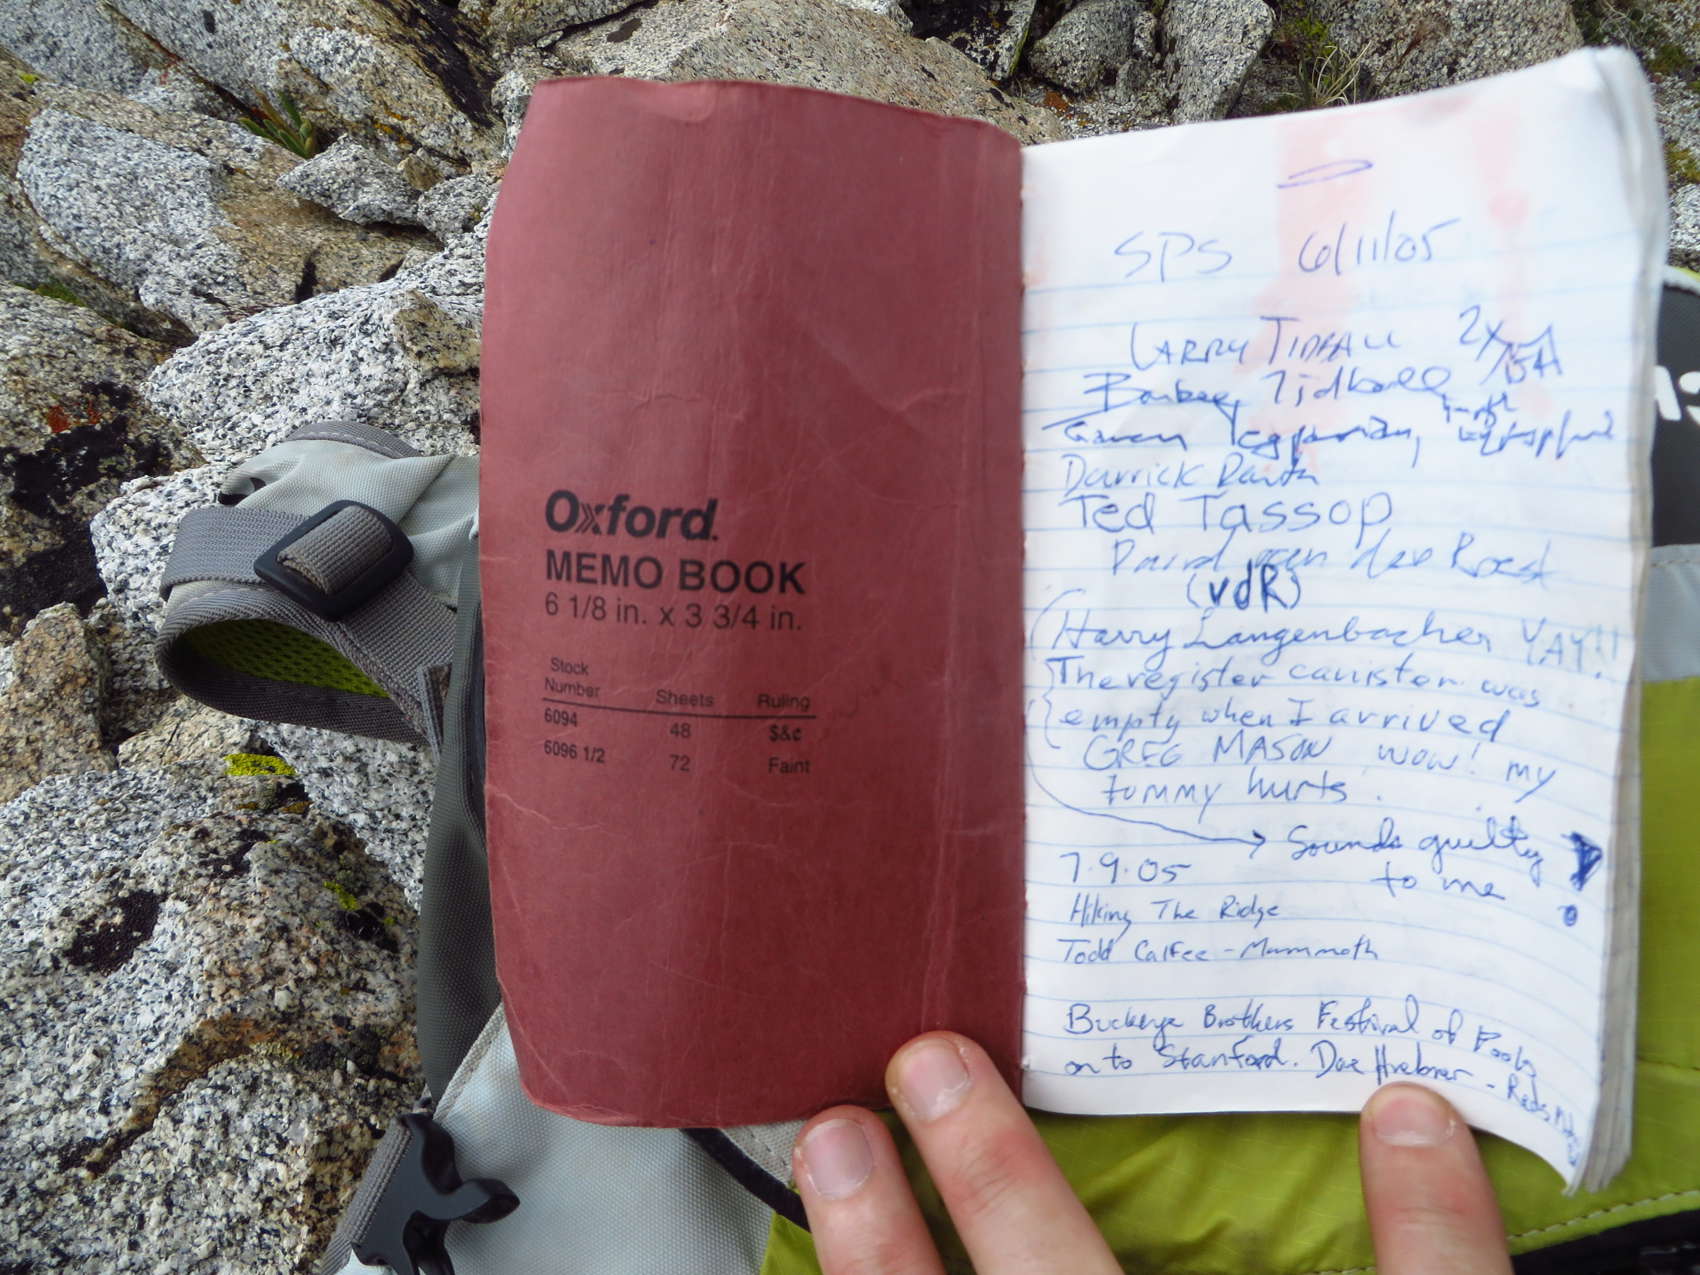 Oxford.
MEMO BOOK
6 1/8 in. x 3 3/4 in.
Stock Number Sheets Ruling
6094 48 $&¢
6096 1/2 72 Faint
SPS 6/11/05
LARRY TIDBALL 2X
Barbee Tidball
Darrick
Ted Tassop
David van der Roest
(vdR)
Harry Langenbacher YAY!!
The register canister was
empty when I arrived
GREG MASON WOW! my
tummy hurts.
Sounds guilty
to me !
7.9.05
Hiking The Ridge
Todd Calfee - Mammoth
Buckeye Brothers Festival of Fools
on to Stanford. Dave